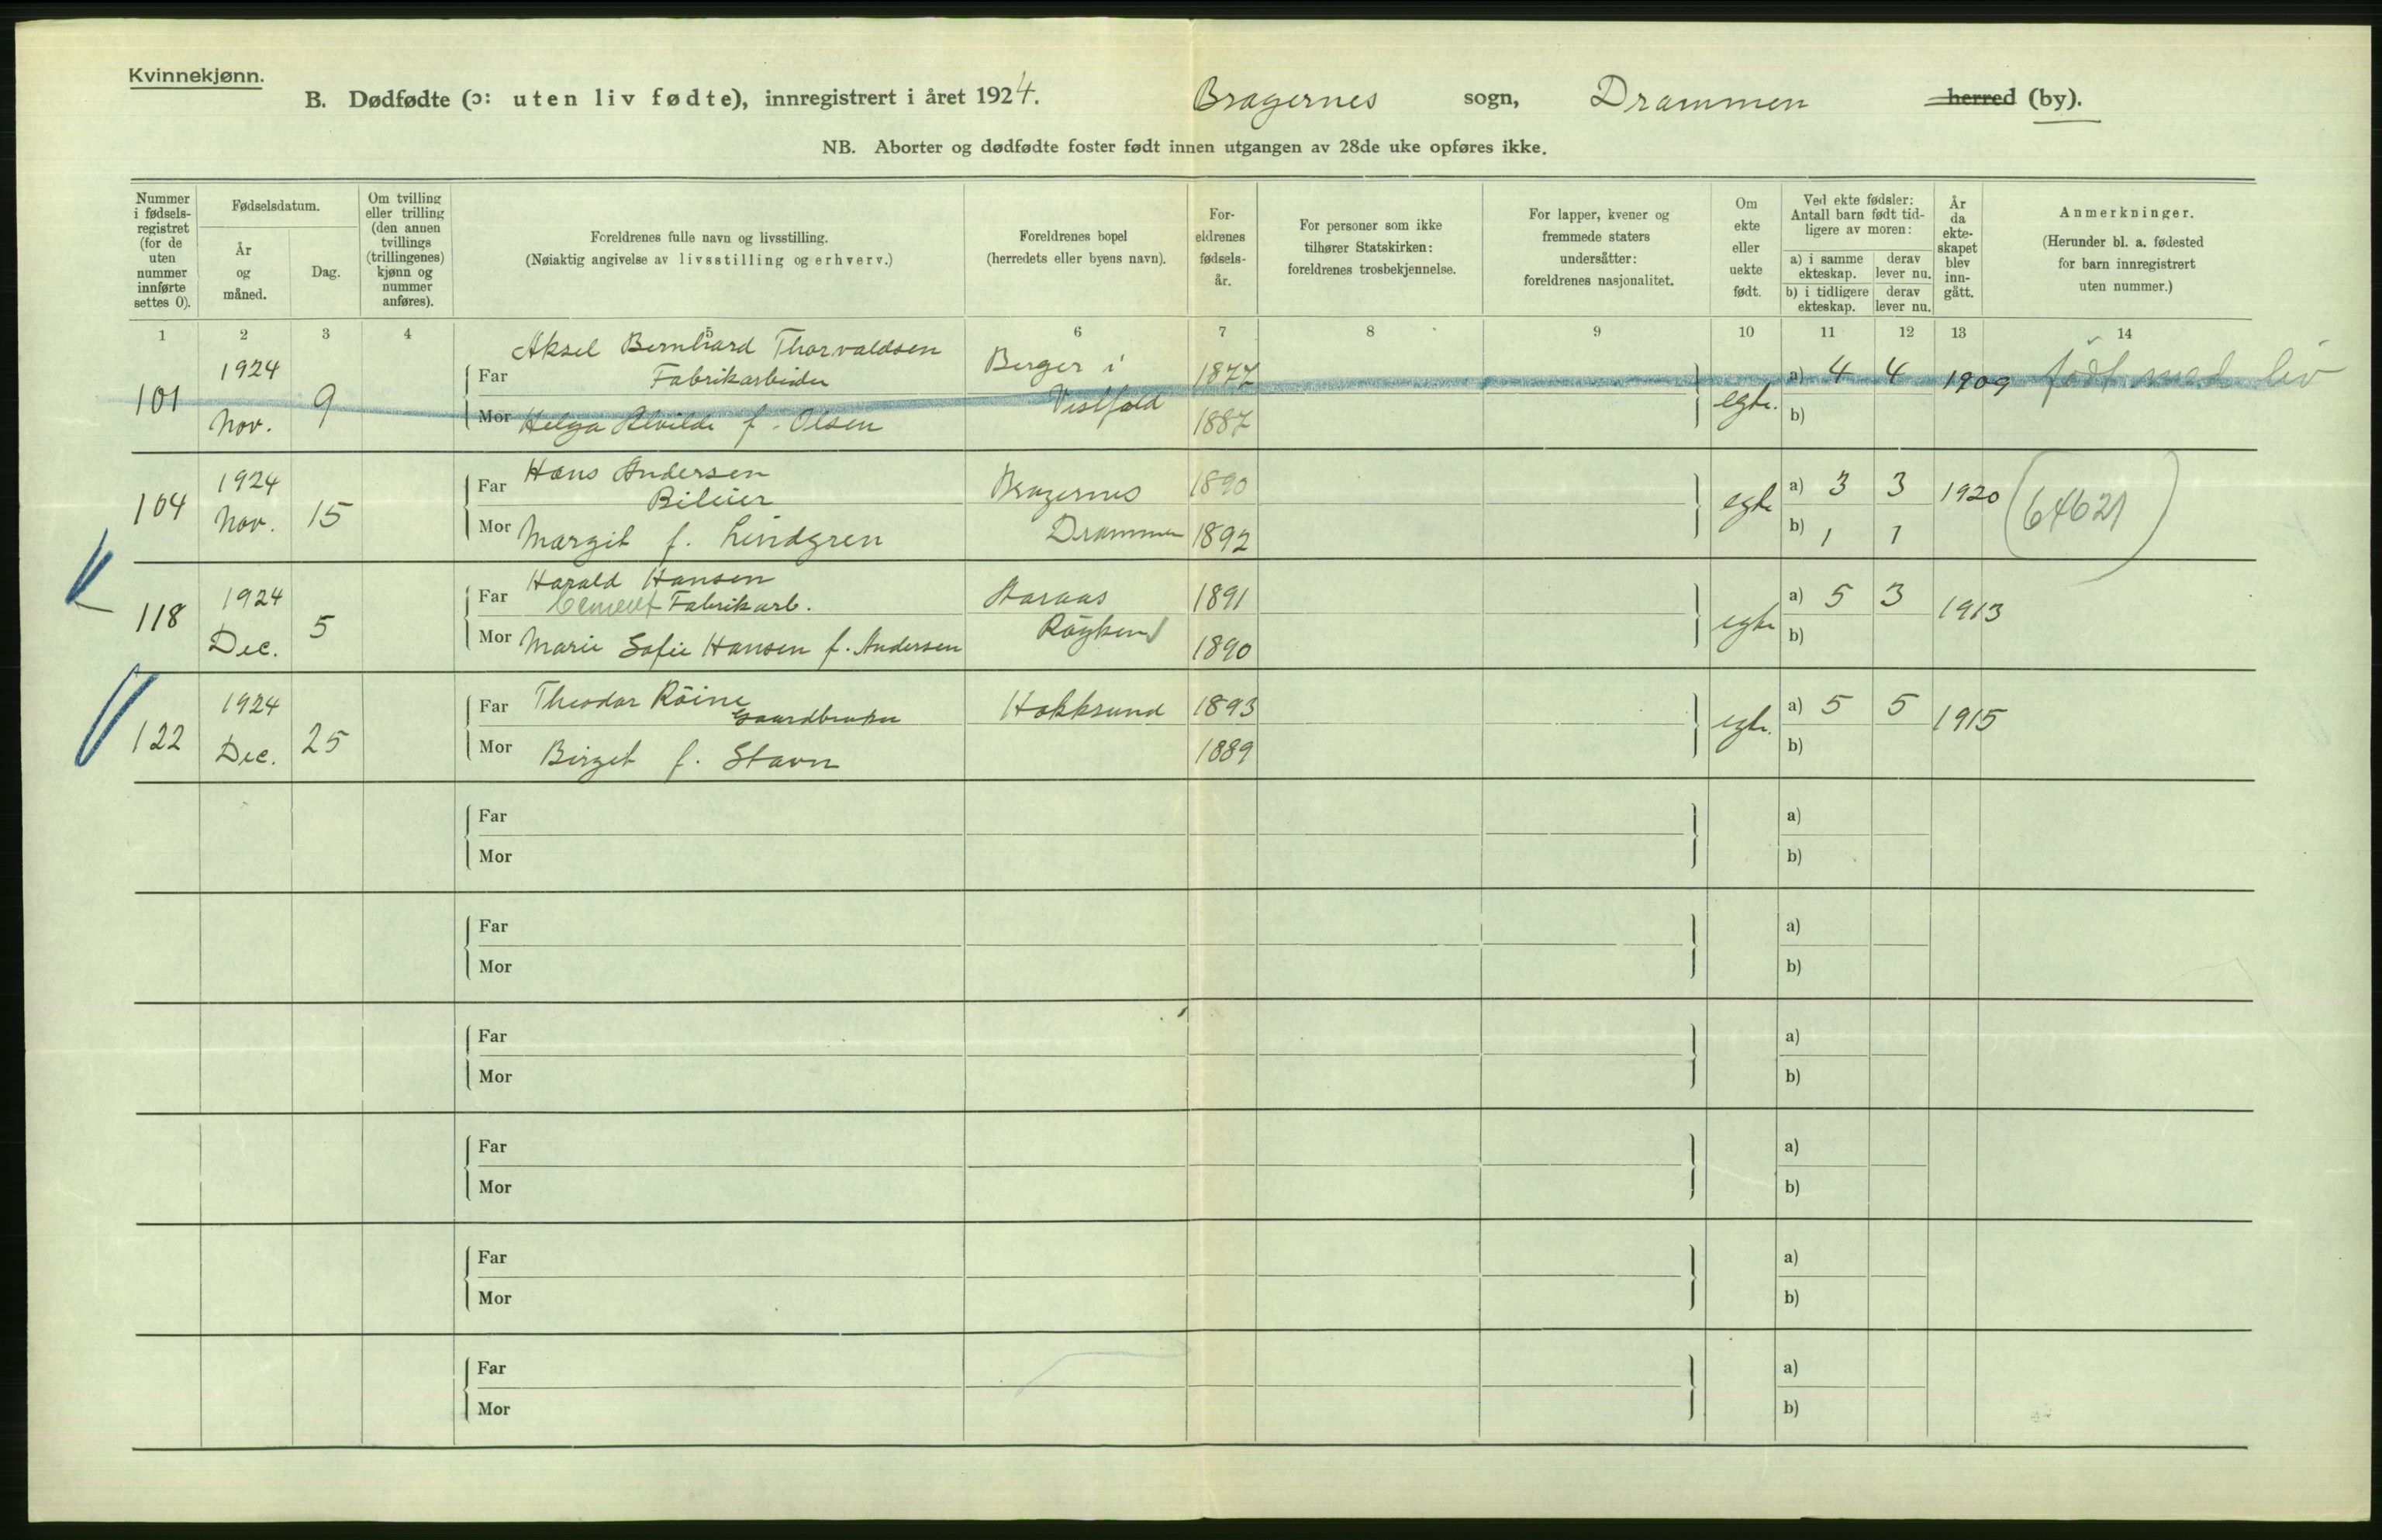 Kvinnekjønn.
B. Dødfødte (ɔ: uten liv fødte), innregistrert i året 1924. Bragernes sogn, Drammen herred (by).
NB. Aborter og dødfødte foster født innen utgangen av 28de uke opføres ikke.
Nummer i fødsels-registret (for de uten nummer innførte settes 0).
Fødselsdatum.
År og måned.
Dag.
Om tvilling eller trilling (den annen tvillings (trillingenes) kjønn og nummer anføres).
Foreldrenes fulle navn og livsstilling.
(Nøiaktig angivelse av livsstilling og erhverv.)
Foreldrenes bopel
(herredets eller byens navn).
For-eldrenes fødsels-år.
For personer som ikke tilhører Statskirken: foreldrenes trosbekjennelse.
For lapper, kvener og fremmede staters undersåtter: foreldrenes nasjonalitet.
Om ekte eller uekte født.
Ved ekte fødsler: Antall barn født tid-ligere av moren:
a) i samme ekteskap. derav lever nu.
b) i tidligere ekteskap. derav lever nu.
År da ekte-skapet blev inn-gått.
Anmerkninger.
(Herunder bl. a. fødested for barn innregistrert uten nummer.)
1 2 3 4 5 6 7 8 9 10 11 12 13 14
101 1924 Nov. 9
Far Aksel Bernhard Thorvaldsen Fabrikarbeider Berger i 1877
Mor Helga Alvilde f. Olsen Vestfold 1887
egte. a) 4 4 b) 1909 født med liv
104 1924 Nov. 15
Far Hans Andersen Bileier Bragernes 1890
Mor Margit f. Lindgren Drammen 1892
egte a) 3 3 b) 1 1 1920 (64621)
118 1924 Dec. 5
Far Harald Hansen Cement Fabrikarb. 1891
Mor Marie Sofie Hansen f. Andersen Røyken 1890
egte a) 5 3 b) 1913
122 1924 Dec. 25
Far Theodor Röine Gaardbruker Hokksund 1893
Mor Birgit f. Stavn 1889
egte. a) 5 5 b) 1915
Far a)
Mor b)
Far a)
Mor b)
Far a)
Mor b)
Far a)
Mor b)
Far a)
Mor b)
Far a)
Mor b)